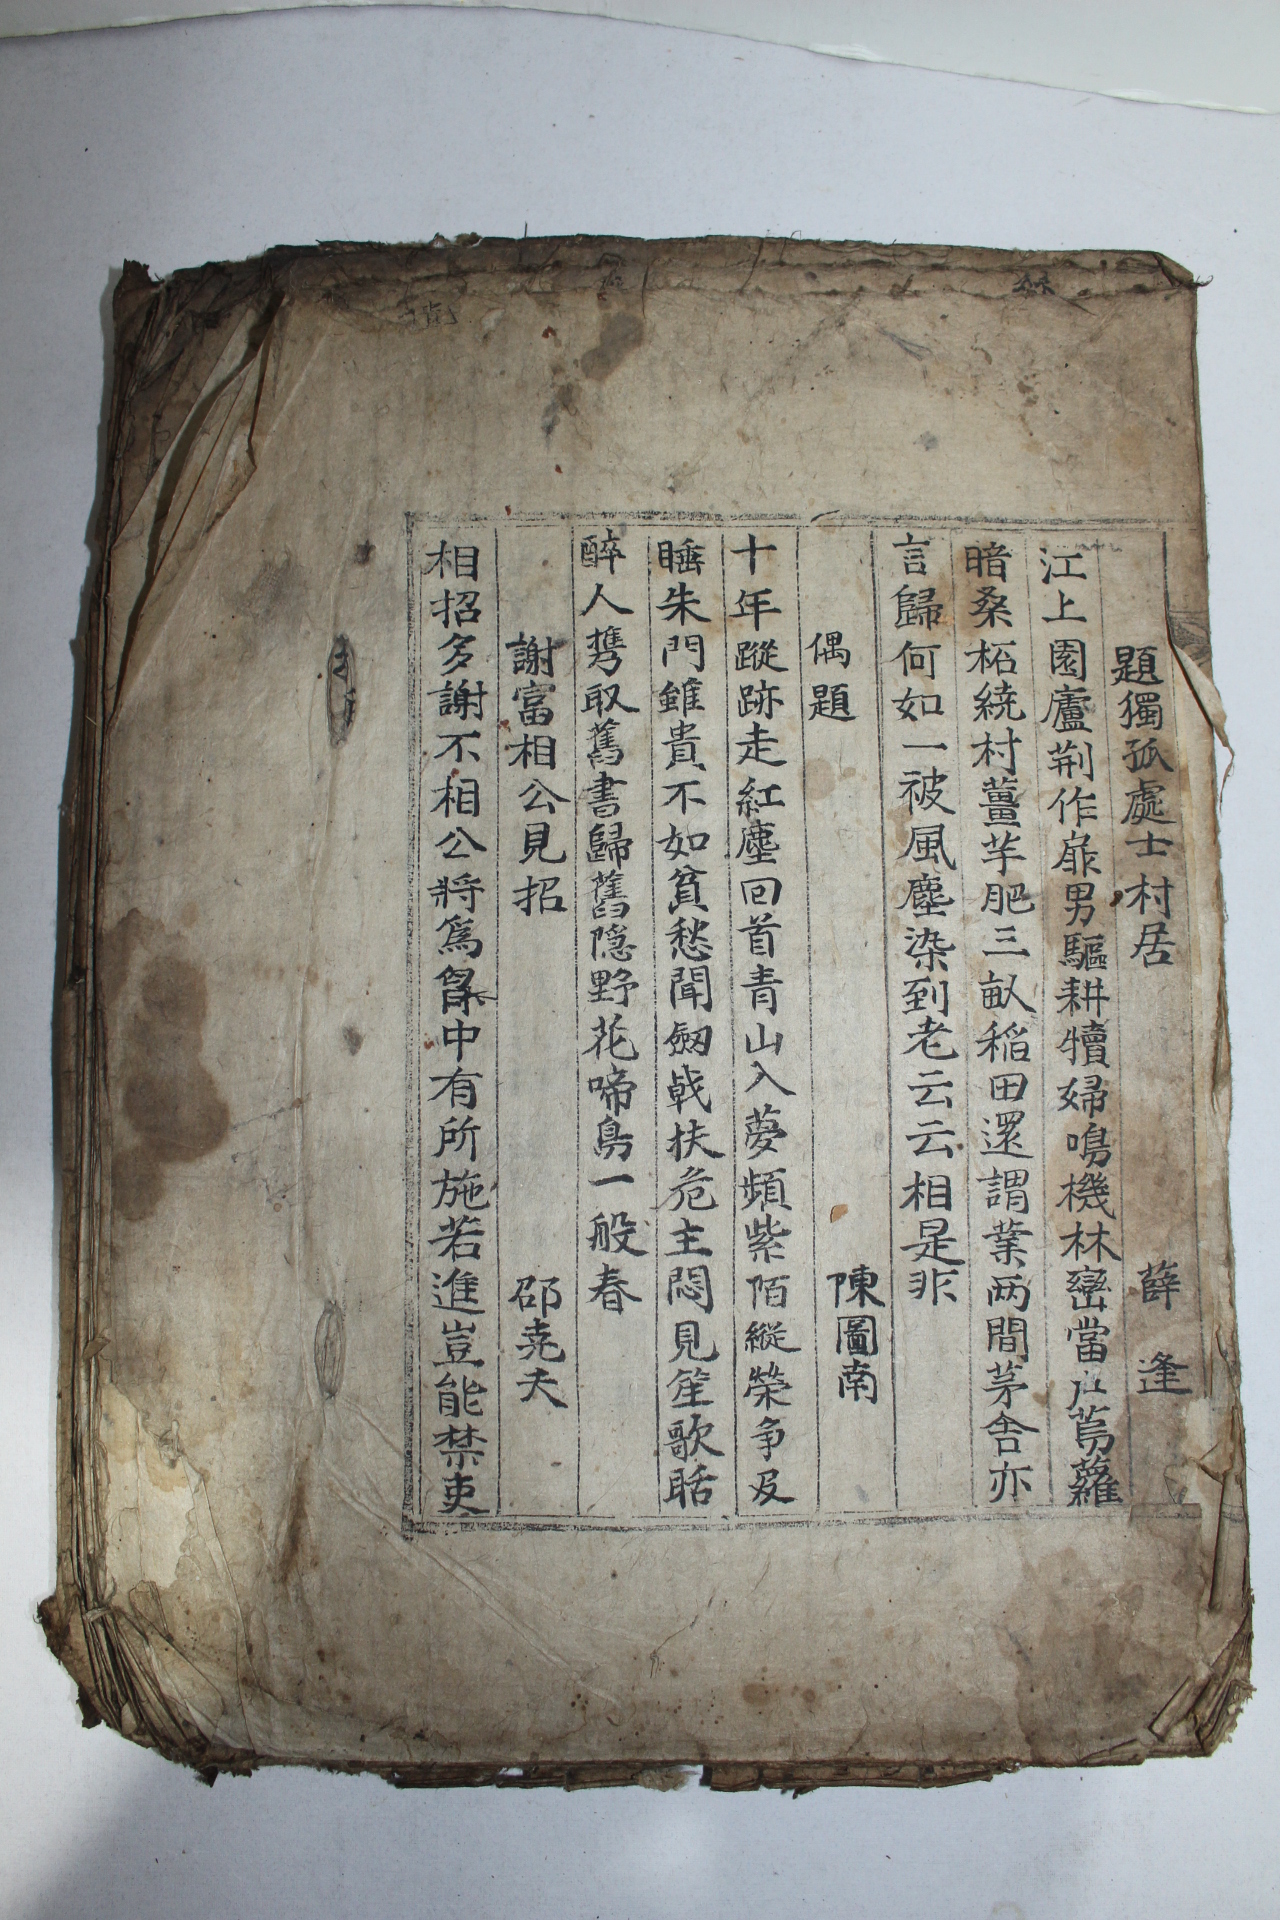 題獨孤處士村居 薛逢
江上園廬荆作扉男驅耕犢婦鳴機林巒當户蔦蘿
暗桑柘繞村薑芋肥三畝稻田還謂業两間茅舍亦
言歸何如一被風塵染到老云云相是非
偶題 陳圖南
十年蹤跡走紅塵回首青山入夢頻紫陌縱榮争及
睡朱門雖貴不如貧愁聞劒戟扶危主悶見笙歌聒
醉人携取舊書歸舊隐野花啼鳥一般春
謝富相公見招 邵尭夫
相招多謝不相公將爲胷中有所施若進豈能禁吏